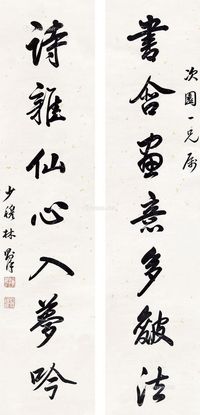 次園一兄属
書舍画意多皴法
詩雜仙心入夢吟
少穆林則徐